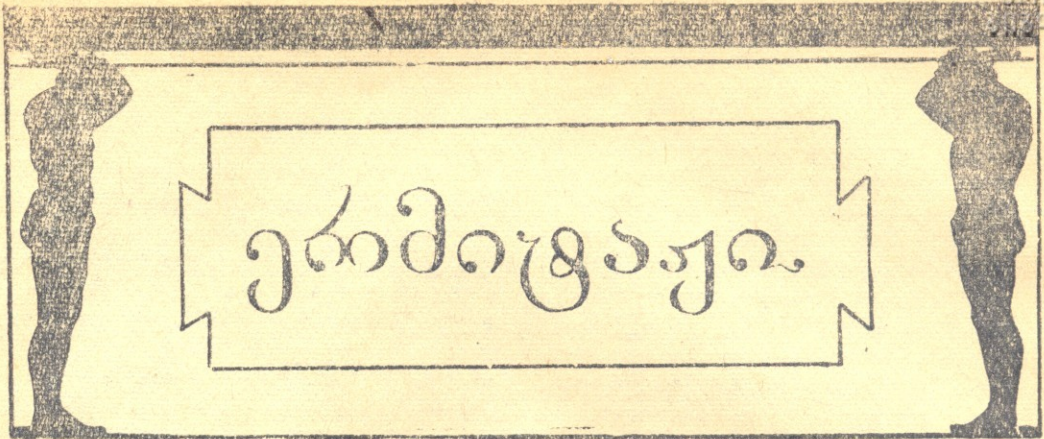 ერმიტაჟი